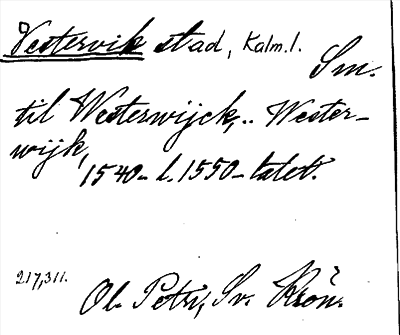 Vestervik stad, Kalm. l.
Sm.
til Westerwijck, .. Wester-
wijk,
1540- l. 1550-talet.
217,311.
Ol. Petri, Sv. Krön.